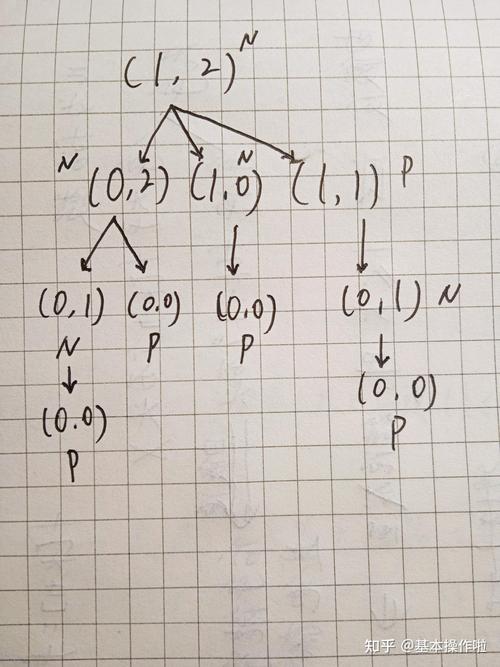 (1, 2) N
N (0,2) (1,0) N (1,1) P
(0,1) (0.0) (0.0) (0,1) N
N P P
(0.0) (0,0)
P P
知乎 @基本操作啦